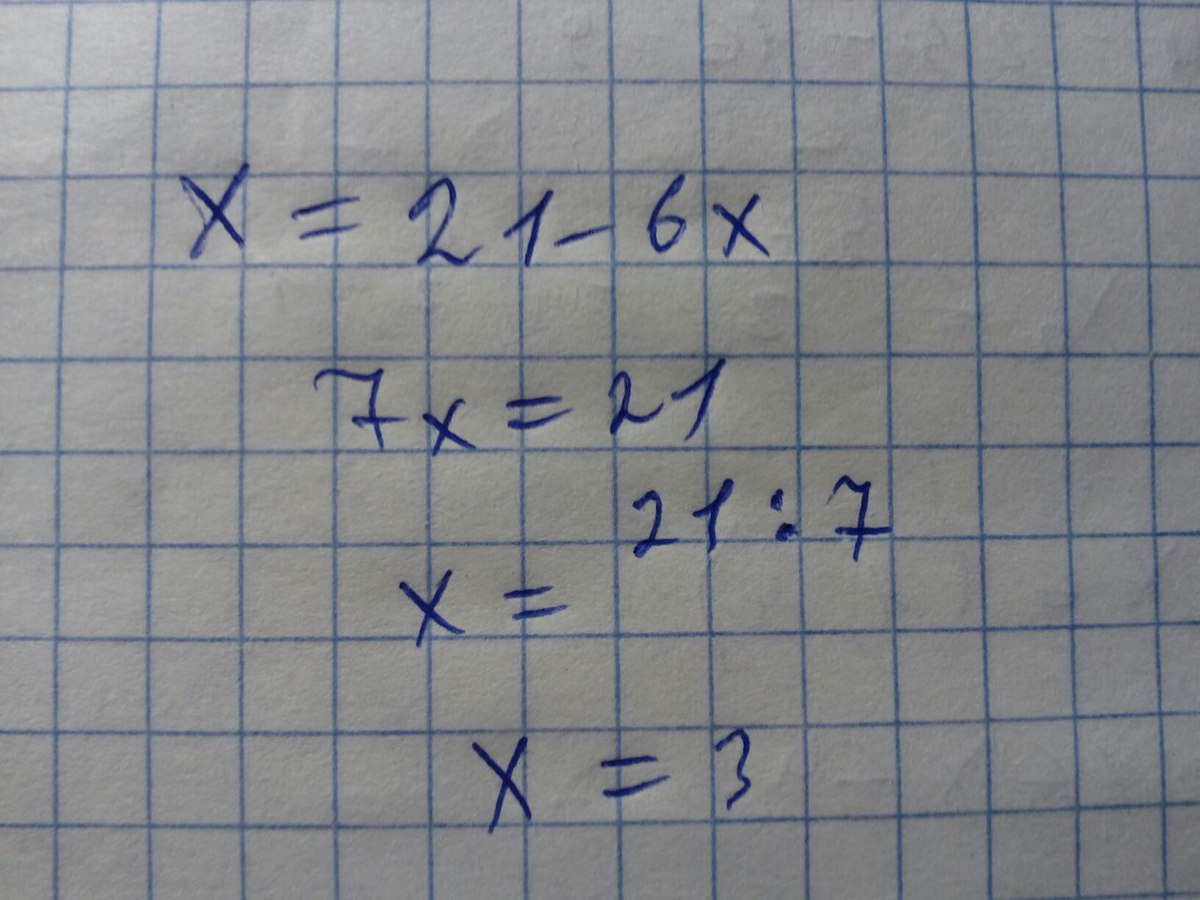 x = 21 - 6x
7x = 21
21 : 7
x =
x = 3